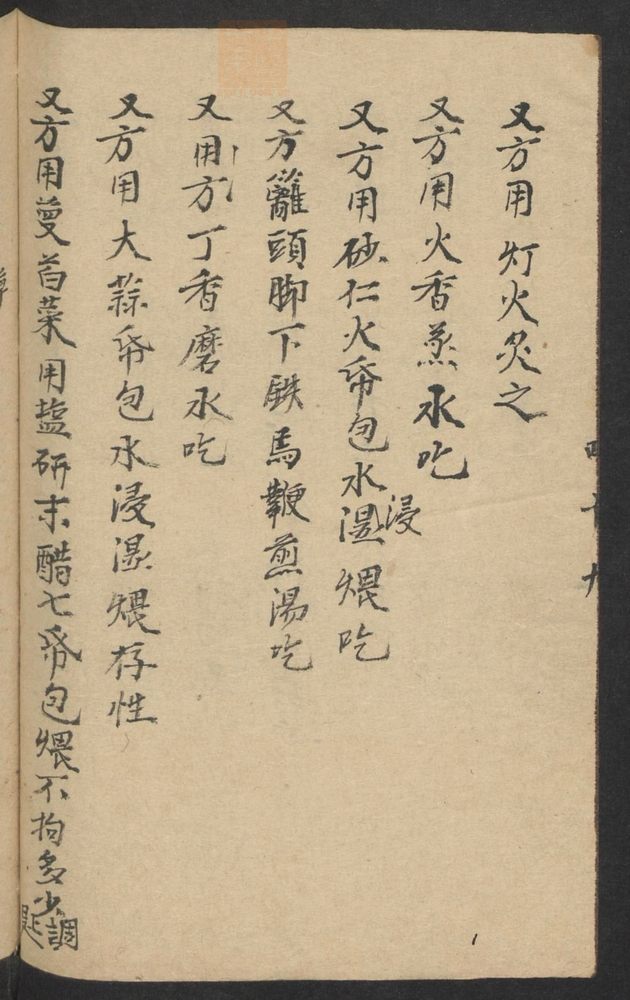 又方用灯火灸之
又方用火香蒸水吃
又方用砂仁火帋包水浸濕煨吃
又方籬頭脚下鉄馬鞭煎湯吃
又用方丁香磨水吃
又方用大蒜帋包水浸濕煨存性
又方用蔓菜用盐研末醋七帋包煨不拘多少調
四十九